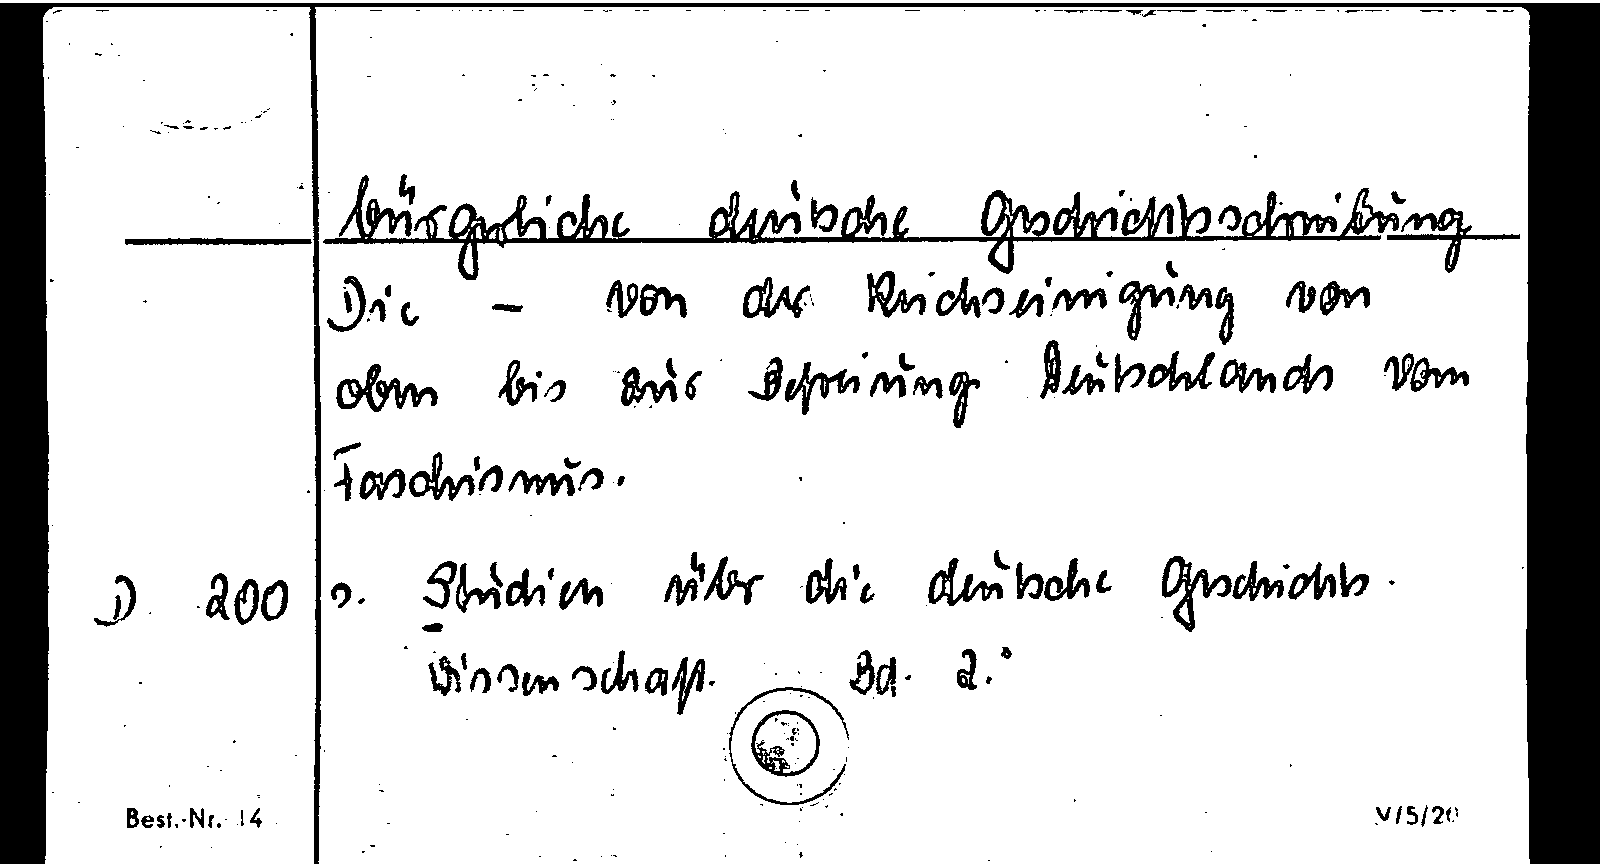 bürgerliche deutsche Geschichtsschreibung
Die – von der Reichseinigung von
oben bis zur Befreiung Deutschlands vom
Faschismus.
D 200 s. Studien über die deutsche Geschichts-
wissenschaft. Bd. 2.
Best.-Nr. 14 V/5/20